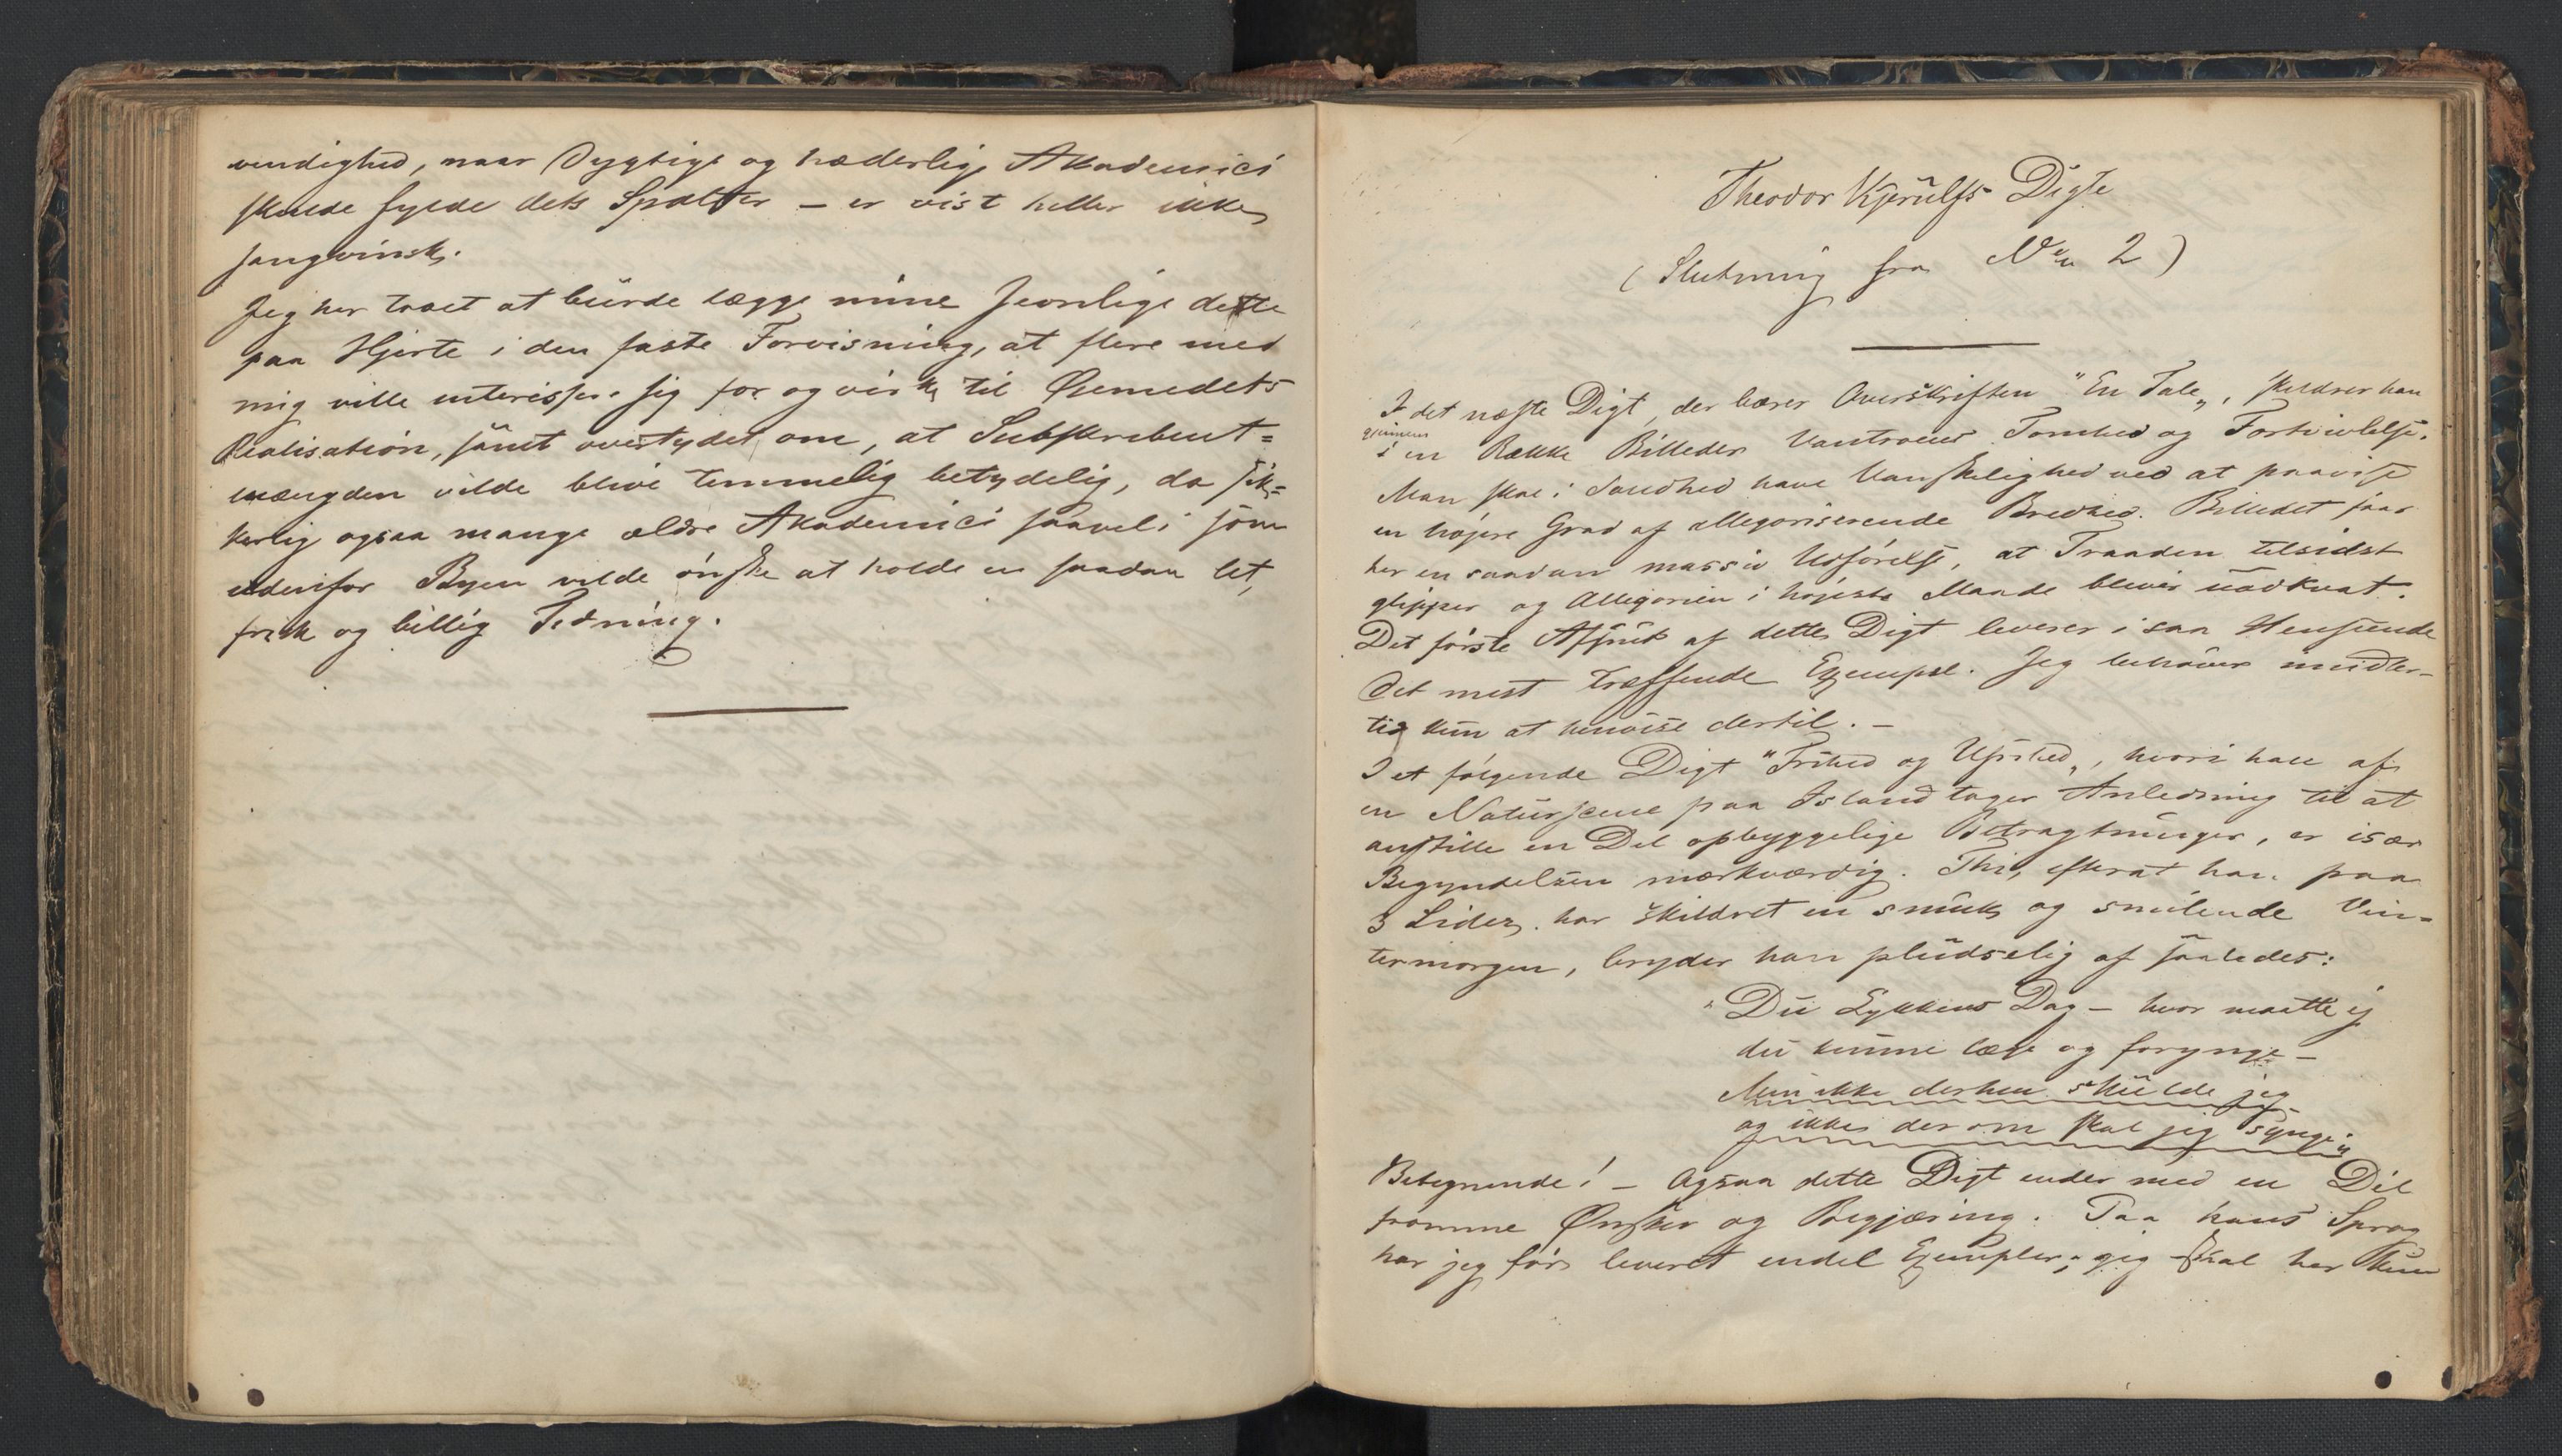 vendighed, naar dygtige og hæderlige Akademici
skulde fylde dets Spalter – er vist heller ikke
sangvinsk.
Jeg har troet at burde lægge mine Jevnlige dette
paa Hjerte i den faste Forvisning, at flere med
mig ville interessere sig for og virke til Øiemedets
Realisation, samt overtydet om, at Subskribent=
mængden vilde blive temmelig betydelig, da sik=
kerlig ogsaa mange ældre Akademici saavel i som
udenfor Byen vilde ønske at holde en saadan let,
frisk og billig Tidning.
Theodor Kjerulfs Digte
(Slutning fra No 2)
I det næste Digt, der bærer Overskriften "En Tale„, skildrer han
gjennem
i en Række Billeder Vantroens Tomhed og Fortvivlelse.
Man skal i Sandhed have Vanskelighed ved at paavise
en højere Grad af allegoriserende Bredhed. Billedet faar
her en saadan massiv Udførelse, at Traaden tilsidst
glipper og Allegorien i højeste Maade bliver uadkvat.
Det første Afsnit af dette Digt leverer i saa Henseende
det mest træffende Exempel. Jeg behøver imidler-
tid kun at henvise dertil. –
I et følgende Digt "Frihed og Ufrihed„, hvori han af
en Naturscene paa Island tager Anledning til at
anstille en Del opbyggelige Betragtninger, er især
Begyndelsen mærkværdig. Thi, efterat han paa
3 Sider har skildret en smuk og smilende Vin=
termorgen, bryder han pludselig af saaledes:
"Du Lykkens Dag – hvor maatte ej
du kunne læge og forynge –
Men ikke derhen skulde jeg
og ikke derom skal jeg synge„
Betegnende! – Ogsaa dette Digt ender med en Del
fromme Ønsker og Begjæring. Paa hans Sprog
har jeg før leveret endel Exempler; jeg skal her kun